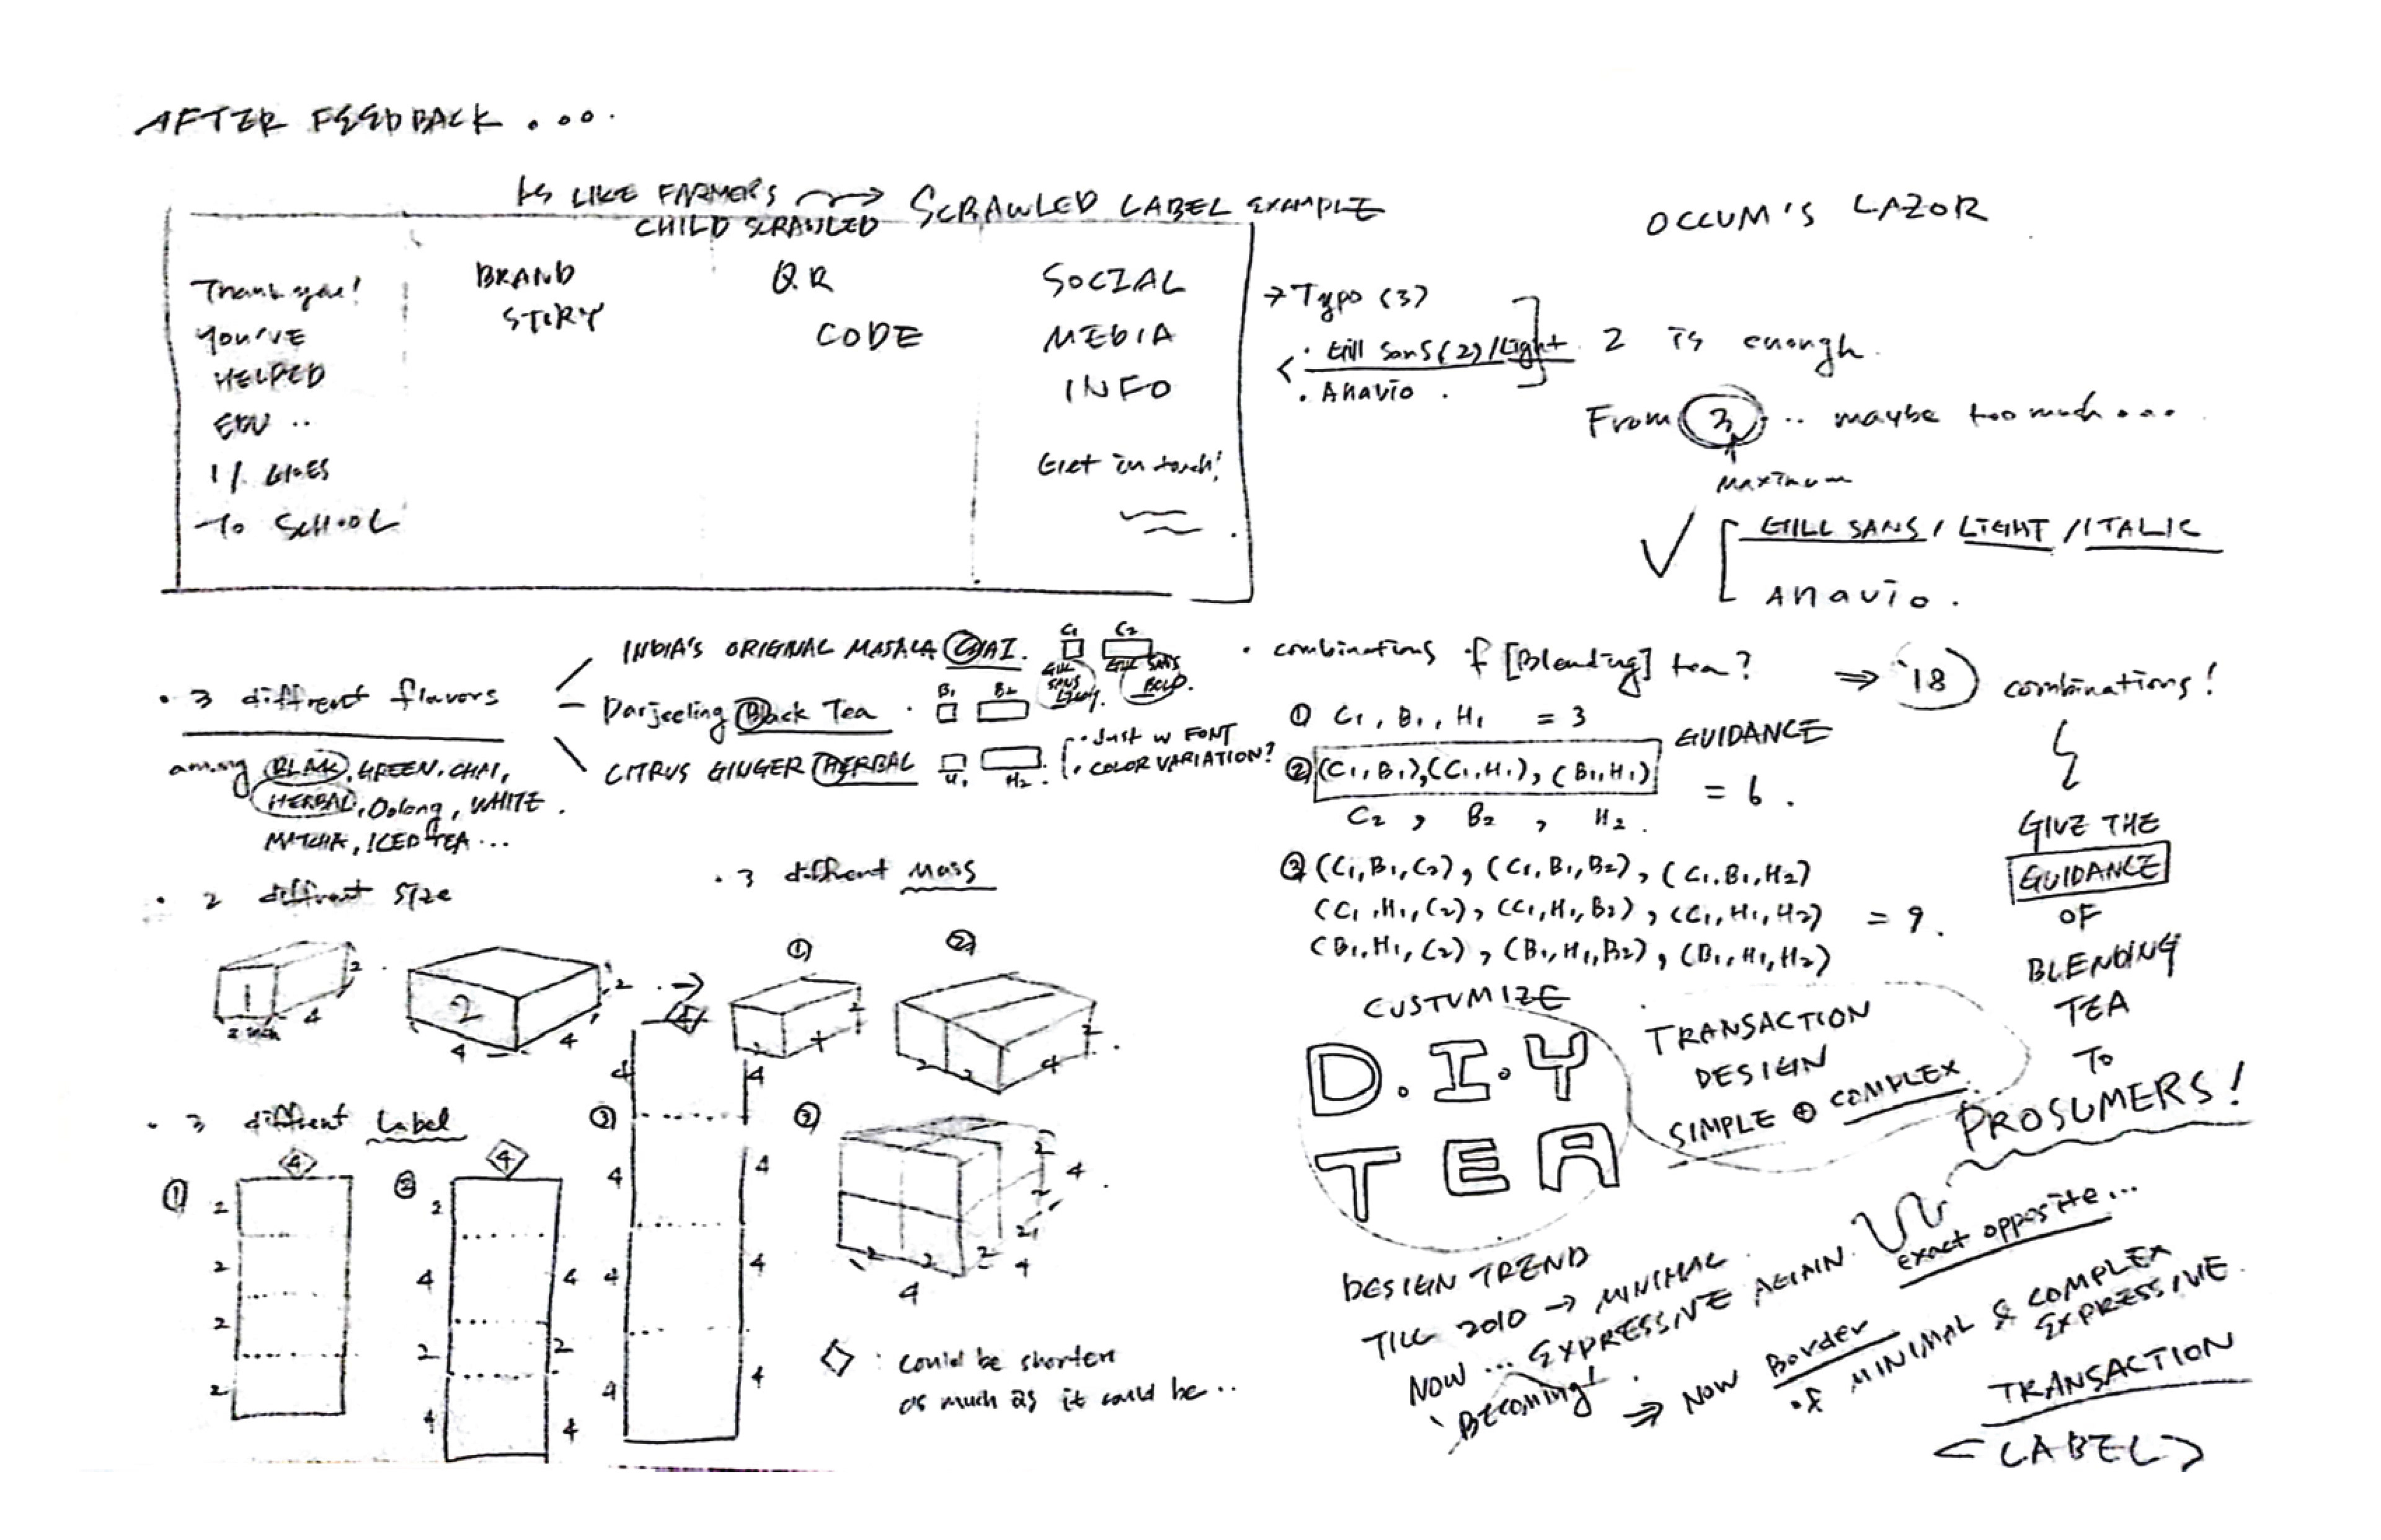 AFTER FEEDBACK ....
AS LIKE FARMERS
CHILD SCRAWLED
SCRAWLED LABEL EXAMPLE
Thank you!
YOU'VE
HELPED
EDU ..
1% GOES
TO SCHOOL
BRAND
STORY
QR
CODE
SOCIAL
MEDIA
INFO
Get in touch!
→ Typo (3)
· Gill Sans (2) / Light
· Anavio .
OCCUM'S LAZOR
2 is enough.
From 3 .. maybe too much ....
MAXIMUM
GILL SANS / LIGHT / ITALIC
Anavio .
· 3 different flavors
among BLACK, GREEN, CHAI,
HERBAL, Oolong, WHITE.
MATCHA, ICED TEA ...
INDIA'S ORIGINAL MASALA CHAI.
C1 C2
GILL SANS LIGHT
GILL SANS BOLD.
Darjeeling Black Tea .
B1 B2
CITRUS GINGER HERBAL
H1 H2
· Just w FONT
· COLOR VARIATION?
· combinations of [Blending] tea?
⇒ 18 combinations!
① C1, B1, H1 = 3
② (C1, B1), (C1, H1), (B1, H1)
C2 , B2 , H2 .
GUIDANCE
= 6 .
③ (C1, B1, C2), (C1, B1, B2), (C1, B1, H2)
(C1, H1, C2), (C1, H1, B2), (C1, H1, H2)
(B1, H1, C2), (B1, H1, B2), (B1, H1, H2)
= 9 .
GIVE THE
GUIDANCE
OF
BLENDING
TEA
TO
PROSUMERS!
· 2 diffrent size
1
2 inch 4 2
2
4 4 2
· 3 diffrent Mass
①
②
2 2 4 2
③
2 2 4 2 4
· 3 diffrent Label
① 4
2
2
2
2
② 4
2
4 4
2 2
4 4
③ 4
4 4
4 4
4 4
4 4
◇ : could be shorten
as much as it could be ..
CUSTUMIZE
D.I.Y
TEA
TRANSACTION
DESIGN
SIMPLE ⊕ COMPLEX
DESIGN TREND
TILL 2010 → MINIMAL
NOW ... EXPRESSIVE AGAIN.
Becoming!
exact opposite ...
⇒ NOW Border
of MINIMAL & COMPLEX
EXPRESSIVE.
TRANSACTION
<LABEL>